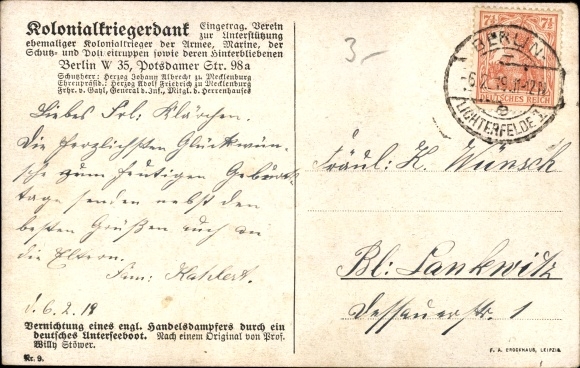 Kolonialkriegerdank Eingetrag. Verein
zur Unterstützung
ehemaliger Kolonialkrieger der Armee, Marine, der
Schutz- und Polizeitruppen sowie deren Hinterbliebenen
Berlin W 35, Potsdamer Str. 98a
Schutzherr: Herzog Johann Albrecht zu Mecklenburg
Ehrenpräsid.: Herzog Adolf Friedrich zu Mecklenburg
Frhr. v. Gayl, General d. Inf., Mitgl. d. Herrenhauses
3-
7½ 7½
DEUTSCHES REICH
BERLIN
LICHTERFELDE
Liebes Frl: Klärchen.
Die herzlichsten Glückwün-
sche zum heutigen Geburts-
tage senden nebst den
besten Grüßen auch an
die Eltern.
Fam:
d. 6. 2. 19
Fräul: K. Wünsch
Bl: Lankwitz
Dessauerstr. 1
Vernichtung eines engl. Handelsdampfers durch ein
deutsches Unterseeboot. Nach einem Original von Prof.
Willy Stöwer.
Nr. 9.
F. A. BROCKHAUS, LEIPZIG.